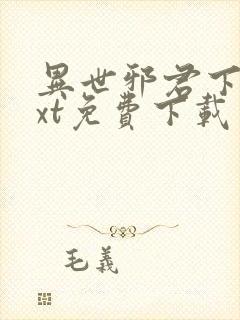 異世邪君下
xt免費下載
毛義